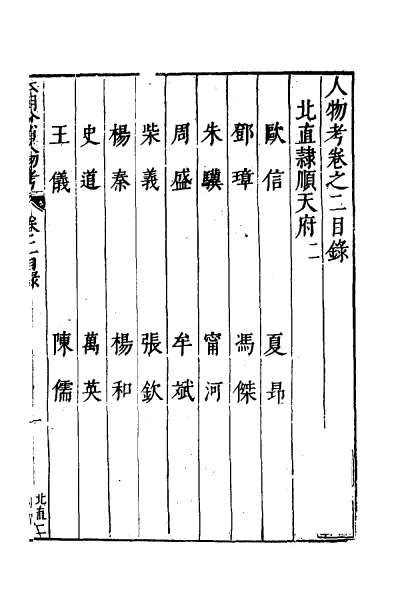 人物考卷之二目錄
北直隸順天府二
歐信 夏昂
鄧璋 馮傑
朱驥 甯河
周盛 牟斌
柴義 張欽
楊秦 楊和
史道 萬英
王儀 陳儒
本朝分省人物考 卷二目錄 一 北直二